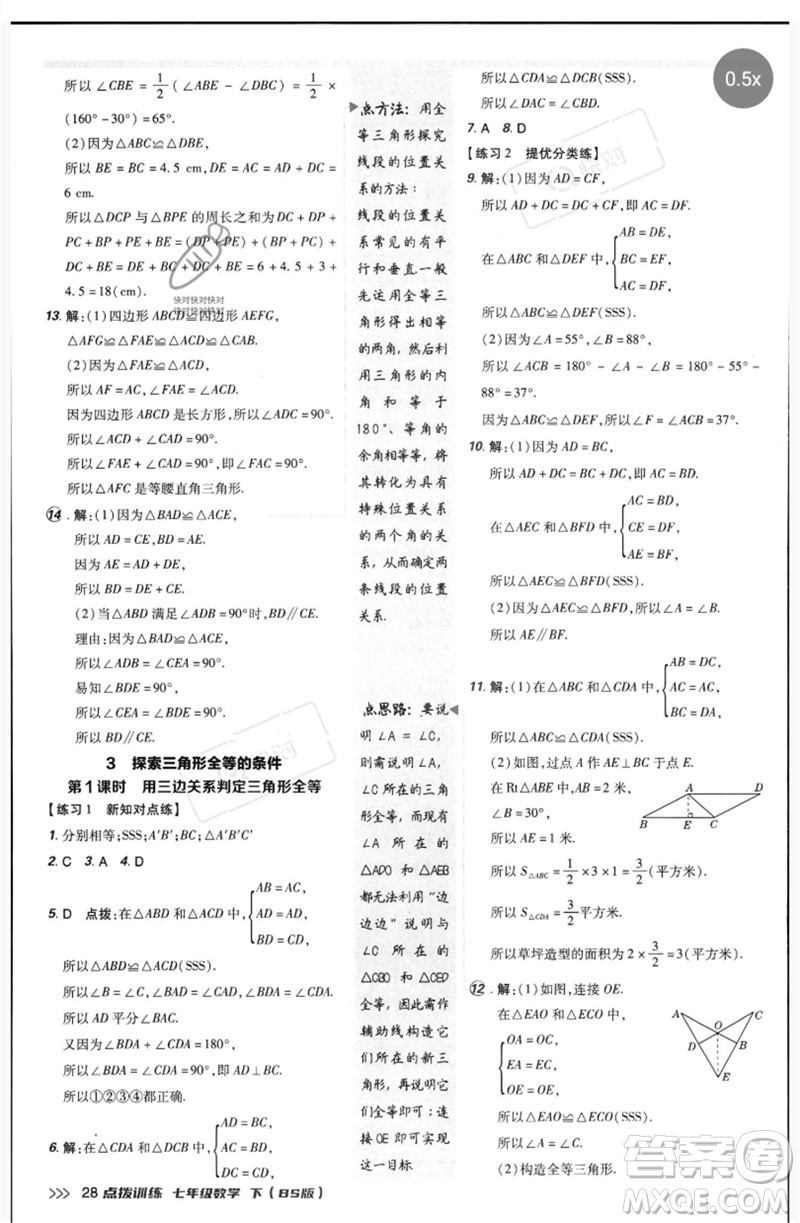 所以∠CBE = 1/2(∠ABE − ∠DBC) = 1/2 ×
(160° − 30°) = 65°.
(2)因为△ABC≌△DBE,
所以 BE = BC = 4.5 cm, DE = AC = AD + DC =
6 cm.
所以△DCP 与△BPE 的周长之和为 DC + DP +
PC + BP + PE + BE = DC + (DP + PE) + (BP +
PC) + BE = DC + DE + BC + BE = 3 + 6 + 4.5 +
4.5 = 18(cm).
13. 解:(1)四边形 ABCD≌四边形 AEFG,
△AFG≌△FAE≌△ACD≌△CAB.
(2)因为△FAE≌△ACD,
所以 AF = AC, ∠FAE = ∠ACD.
因为四边形 ABCD 是长方形,所以∠ADC = 90°.
所以∠ACD + ∠CAD = 90°.
所以∠FAE + ∠CAD = 90°,即∠FAC = 90°.
所以△AFC 是等腰直角三角形.
14. 解:(1)因为△BAD≌△ACE,
所以 AD = CE, BD = AE.
因为 AE = AD + DE,
所以 BD = DE + CE.
(2)当△ABD 满足∠ADB = 90°时, BD∥CE.
理由:因为△BAD≌△ACE,
所以∠ADB = ∠CEA = 90°.
易知∠BDE = 90°,
所以∠BDE = ∠CEA = 90°.
所以 BD∥CE.
3 探索三角形全等的条件
第1课时 用三边关系判定三角形全等
【练习1 新知对点练】
1. 分别相等;SSS;A′B′;BC;△A′B′C′
2. C 3. A 4. D
5. D 点拨:在△ABD 和△ACD 中, { AB = AC,
AD = AD,
BD = CD,
所以△ABD≌△ACD(SSS).
所以∠B = ∠C, ∠BAD = ∠CAD, ∠BDA = ∠CDA.
所以 AD 平分∠BAC.
又因为∠BDA + ∠CDA = 180°,
所以∠BDA = ∠CDA = 90°,即 AD ⊥ BC.
所以①②③④都正确.
6. 解:在△CDA 和△DCB 中, { AD = BC,
CD = DC,
AC = BD,
点方法:用全
等三角形探究
线段的位置关
系的方法:
线段的位置关
系常见的有平
行和垂直,一般
先运用全等三
角形得出相等
的两角,然后利
用三角形的内
角和等于
180°、等角的
余角相等等,将
其转化为具有
特殊位置关系
的两个角的关
系,从而确定两
条线段的位置
关系.
点思路:要说
明∠A = ∠C,
则需说明∠A,
∠C 所在的三角
形全等,而现有
∠A 所在的
△ADO 和△AEB
都无法利用“边
边边”说明与
∠C 所在的
△CBO 和△CED
全等,因此需作
辅助线构造它
们所在的新三
角形,再说明新
三角形全等即可;连
接OE即可实现
这一目标.
所以△CDA≌△DCB(SSS).
所以∠DAC = ∠CBD.
7. A 8. D
【练习2 提优分类练】
9. 解:(1)因为 AD = CF,
所以 AD + DC = DC + CF,即 AC = DF.
在△ABC 和△DEF 中, { AB = DE,
BC = EF,
AC = DF,
所以△ABC≌△DEF(SSS).
(2)因为∠A = 55°, ∠B = 88°,
所以∠ACB = 180° − ∠A − ∠B = 180° − 55° −
88° = 37°.
因为△ABC≌△DEF,所以∠F = ∠ACB = 37°.
10. 解:(1)因为 AD = BC,
所以 AD + DC = BC + DC,即 AC = BD.
在△AEC 和△BFD 中, { AC = BD,
CE = DF,
AE = BF,
所以△AEC≌△BFD(SSS).
(2)因为△AEC≌△BFD,所以∠A = ∠B.
所以 AE∥BF.
11. 解:(1)在△ABC 和△CDA 中, { AB = DC,
AC = CA,
BC = DA,
所以△ABC≌△CDA(SSS).
(2)如图,过点 A 作 AE ⊥ BC 于点 E.
在 Rt△ABE 中,
∠B = 30°, AB = 2 米,
所以 AE = 1 米.
所以 S△ABC = 1/2 × 3 × 1 = 3/2(平方米).
所以 S△CDA = 3/2平方米.
所以草坪造型的面积为 2 × 3/2 = 3(平方米).
A D
B E C
12. 解:(1)如图,连接 OE.
在△EAO 和△ECO 中,
{ OA = OC,
EA = EC,
OE = OE,
所以△EAO≌△ECO(SSS).
所以∠A = ∠C.
(2)构造全等三角形.
A C
O
D B
E
>>> 28 点拨训练 七年级数学 下(BS版)
0.5x
快对快对快对
快对快对快对
快对
答案圈